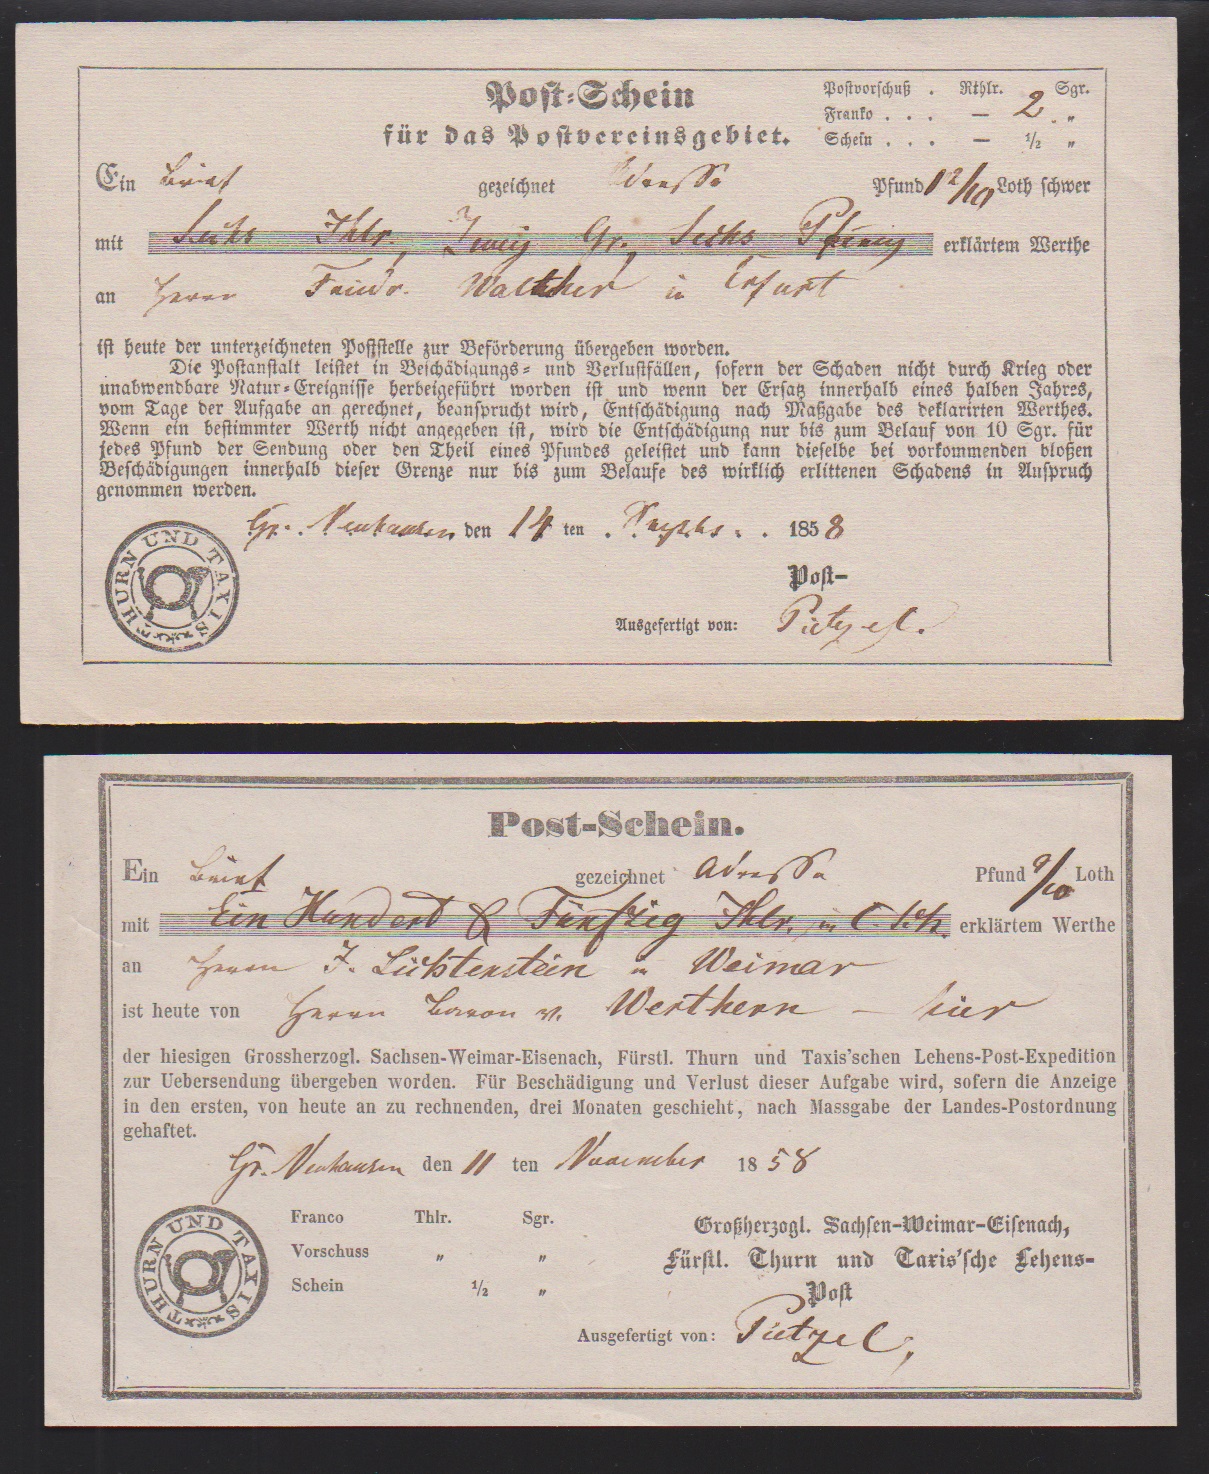 Post-Schein
für das Postvereinsgebiet.
Postvorschuß . Rthlr. Sgr.
Franko . . . — 2 . „
Schein . . . — ½ „
Ein Brief gezeichnet Adresse Pfund 1 2/10 Loth schwer
mit Sechs Thlr. Zwei Gr. Sechs Pfennig erklärtem Werthe
an Herrn Friedr. Walther in Erfurt
ist heute der unterzeichneten Poststelle zur Beförderung übergeben worden.
Die Postanstalt leistet in Beschädigungs- und Verlustfällen, sofern der Schaden nicht durch Krieg oder
unabwendbare Natur-Ereignisse herbeigeführt worden ist und wenn der Ersatz innerhalb eines halben Jahres,
vom Tage der Aufgabe an gerechnet, beansprucht wird, Entschädigung nach Maßgabe des deklarirten Werthes.
Wenn ein bestimmter Werth nicht angegeben ist, wird die Entschädigung nur bis zum Belauf von 10 Sgr. für
jedes Pfund der Sendung oder den Theil eines Pfundes geleistet und kann dieselbe bei vorkommenden bloßen
Beschädigungen innerhalb dieser Grenze nur bis zum Belaufe des wirklich erlittenen Schadens in Anspruch
genommen werden.
Gr. Neuhausen den 14 ten . . . 1858
Post-
Ausgefertigt von:
THURN UND TAXIS
Post-Schein.
Ein Brief gezeichnet Adresse Pfund 9/10 Loth
mit Ein Hundert & Fünfzig Thlr. in erklärtem Werthe
an Herrn J. Lichtenstein in Weimar
ist heute von Herrn Baron v. Werthern — hier
der hiesigen Grossherzogl. Sachsen-Weimar-Eisenach, Fürstl. Thurn und Taxis'schen Lehens-Post-Expedition
zur Uebersendung übergeben worden. Für Beschädigung und Verlust dieser Aufgabe wird, sofern die Anzeige
in den ersten, von heute an zu rechnenden, drei Monaten geschieht, nach Massgabe der Landes-Postordnung
gehaftet.
Gr. Neuhausen den 11 ten November 1858
THURN UND TAXIS
Franco Thlr. Sgr.
Vorschuss „ „
Schein ½ „
Großherzogl. Sachsen-Weimar-Eisenach,
Fürstl. Thurn und Taxis'sche Lehens-
Post
Ausgefertigt von: